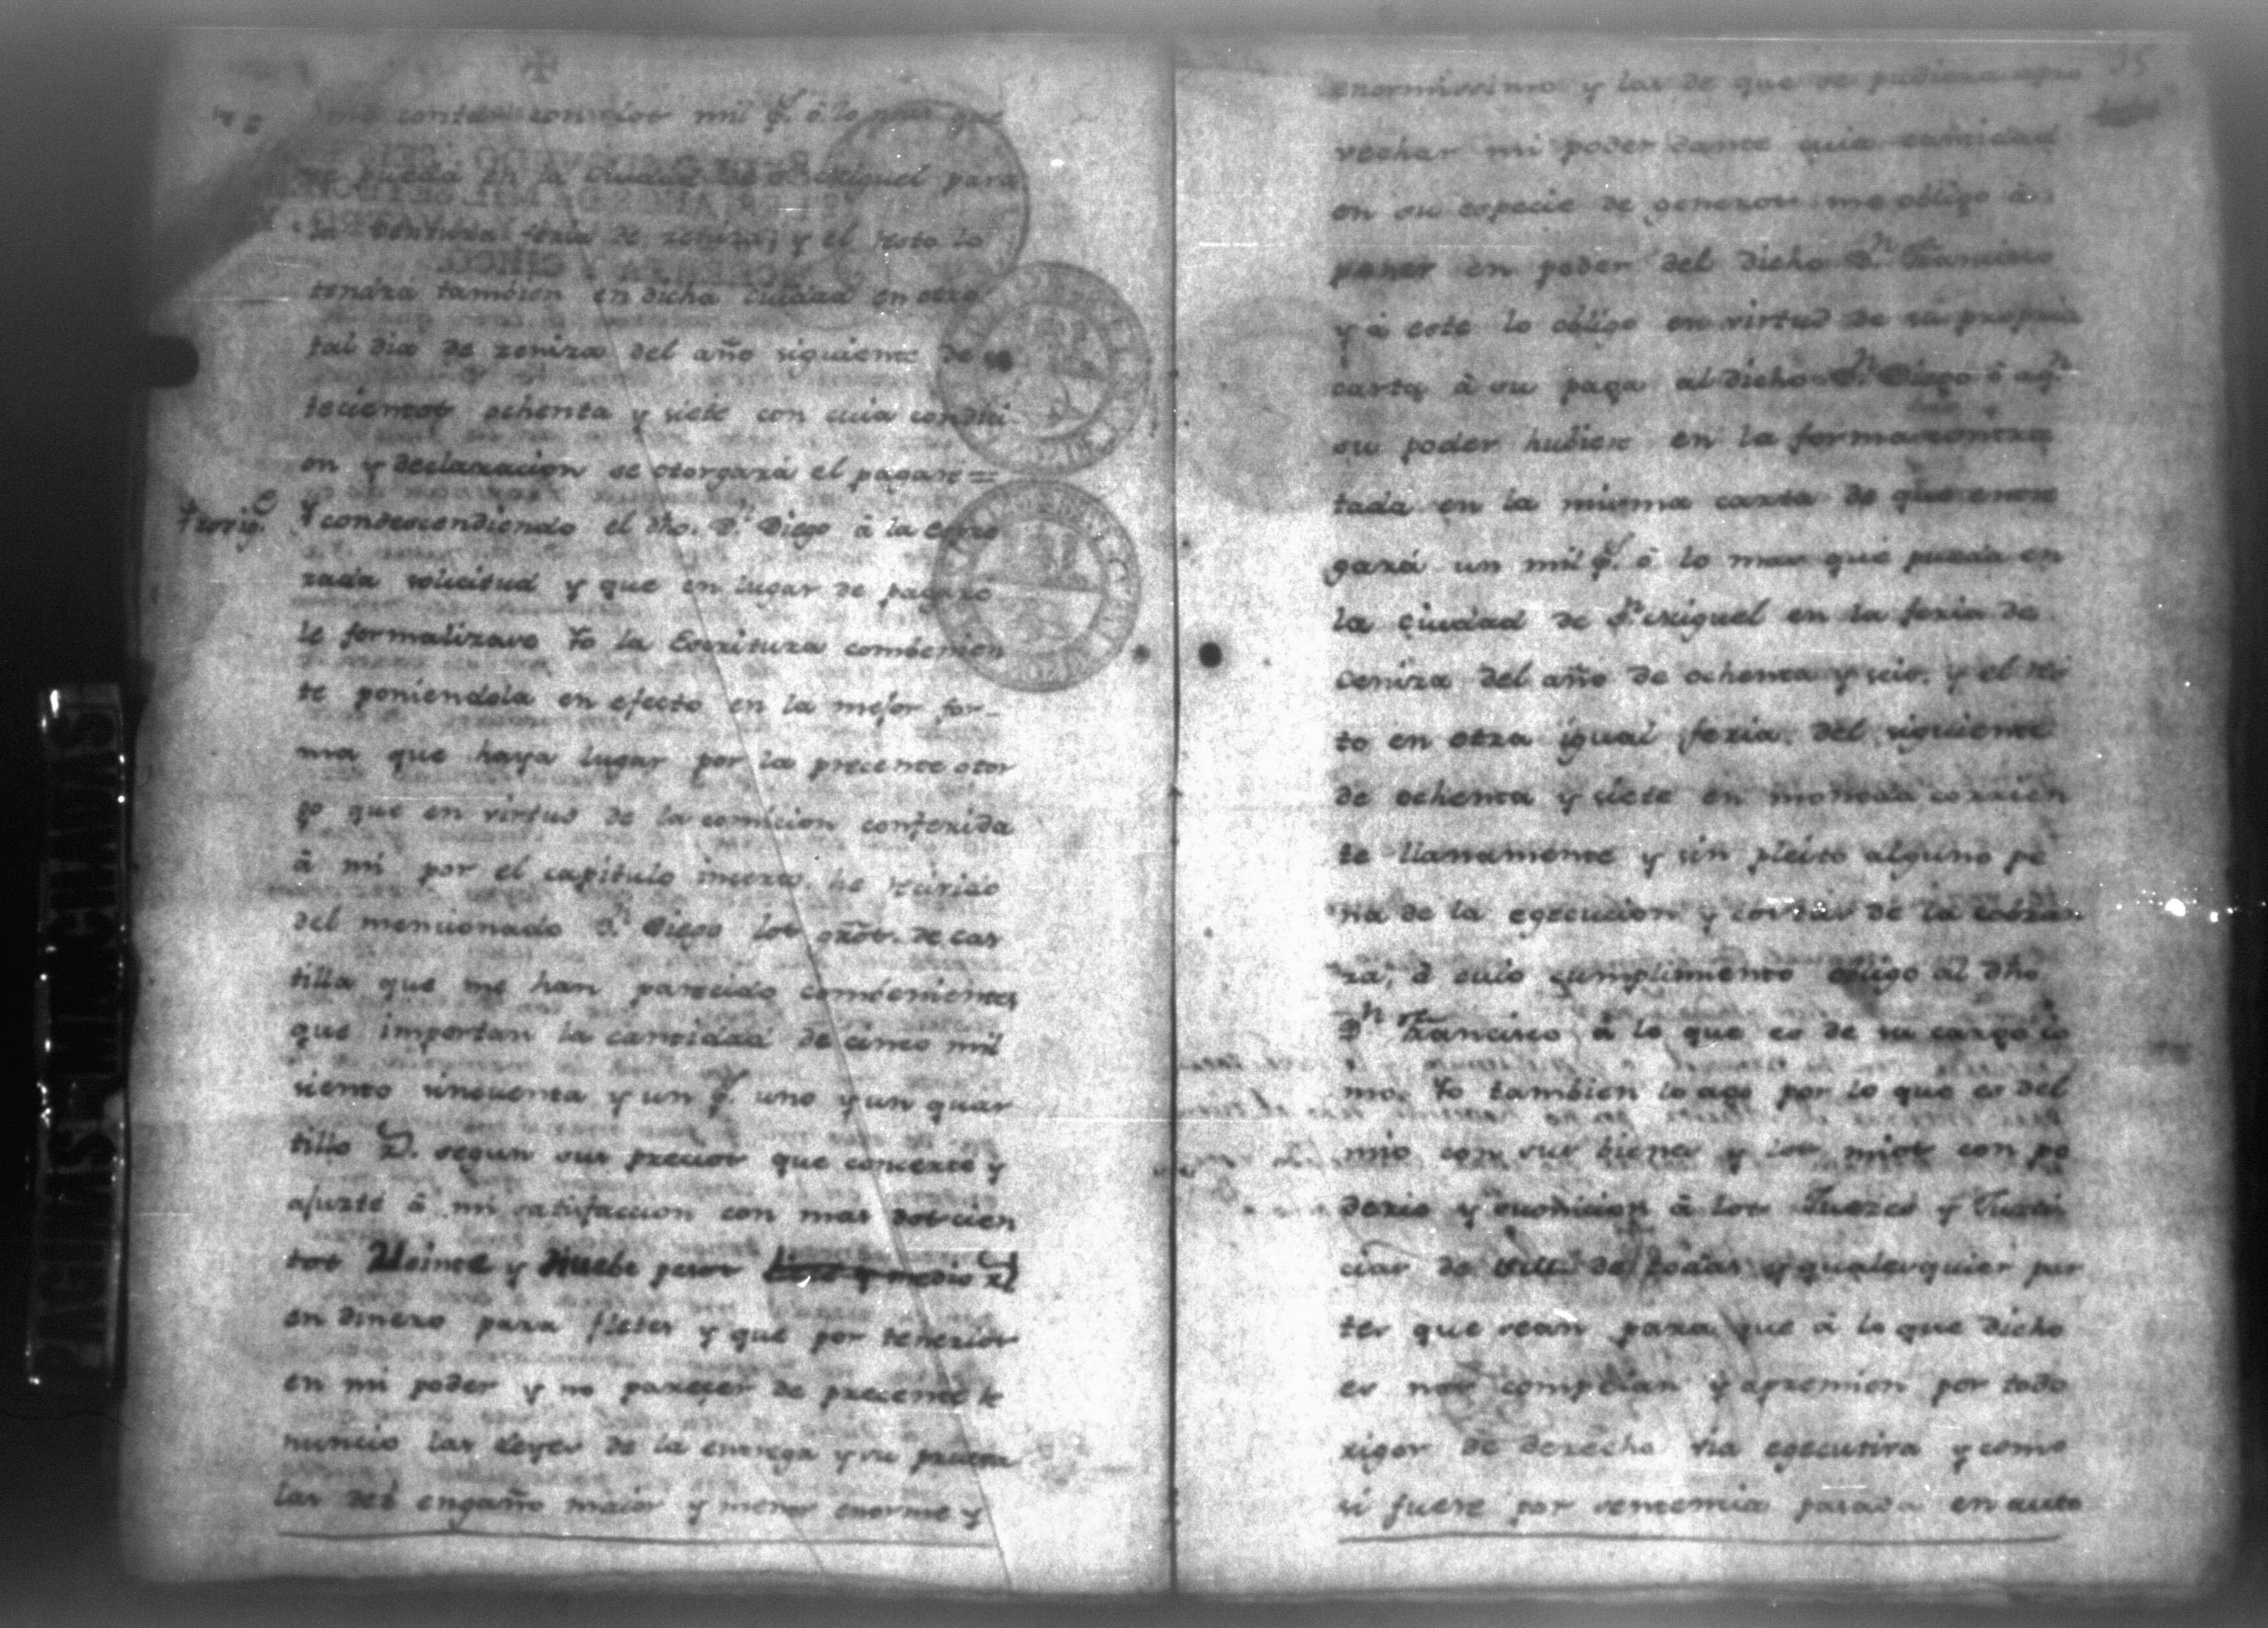 contar con mil p.s ó lo mas que
me pueda en la Ciudad de S.n Miguel para
la feria de zeniza, y el resto lo
tendra tambien en dicha ciudad en otro
tal dia de zeniza del año siguiente de
tecientos ochenta y siete con cuia condici
on y declaracion se otorgará el pagaré =
Y condescendiendo el dho. D.n Diego á la
rada solicitud y que en lugar de pagaré
le formalizase Yo la Escritura combenien
te poniendola en efecto en la mejor for-
ma que haya lugar por la precente otor
go que en virtud de la comicion conferida
á mi por el capitulo inserto, he recivido
del mencionado D.n Diego los gros. de cas
tilla que me han parecido combenientes
que importan la cantidad de cinco mil
siento sincuenta y un p.s uno y un quar
tillo r.l segun sus precios que concerté y
ajusté á mi satisfaccion con mas doscien
tos Veinte y Nuebe pesos
en dinero para fletes y que por tenerlos
en mi poder y no parecer de precente re
nuncio las Leyes de la entrega y su prueva
las del engaño maior y menor enorme y
enormissimo y las de que se pudiera apro
vechar mi poder dante cuia cantidad
en su especie de generos me obligo á
poner en poder del dicho D.n Francisco
y á este lo obligo en virtud de su propria
carta á su paga al dicho D.n Diego ó á q.n
su poder hubiere en la forma contra
tada en la misma carta de que entre
gará un mil p.s ó lo mas que pueda en
la ciudad de S.n Miguel en la feria de
Ceniza del año de ochenta y seis, y el res
to en otra igual feria del siguiente
de ochenta y siete en moneda corrien
te llanamente y sin pleito alguno pe
na de la egecucion y costas de la cobran
za, á cuio cumplimiento obligo al dho
D.n Francisco á lo que es de su cargo co
mo Yo tambien lo ago por lo que es del
mio con sus bienes y los mios con po
derio y sumicion á los Juezes y Justi
cias de S.M. de todas y qualesquier par
tes que sean para que á lo que dicho
es nos compelan y apremien por todo
rigor de derecho via egecutiva y como
si fuere por sentencia pasada en auto